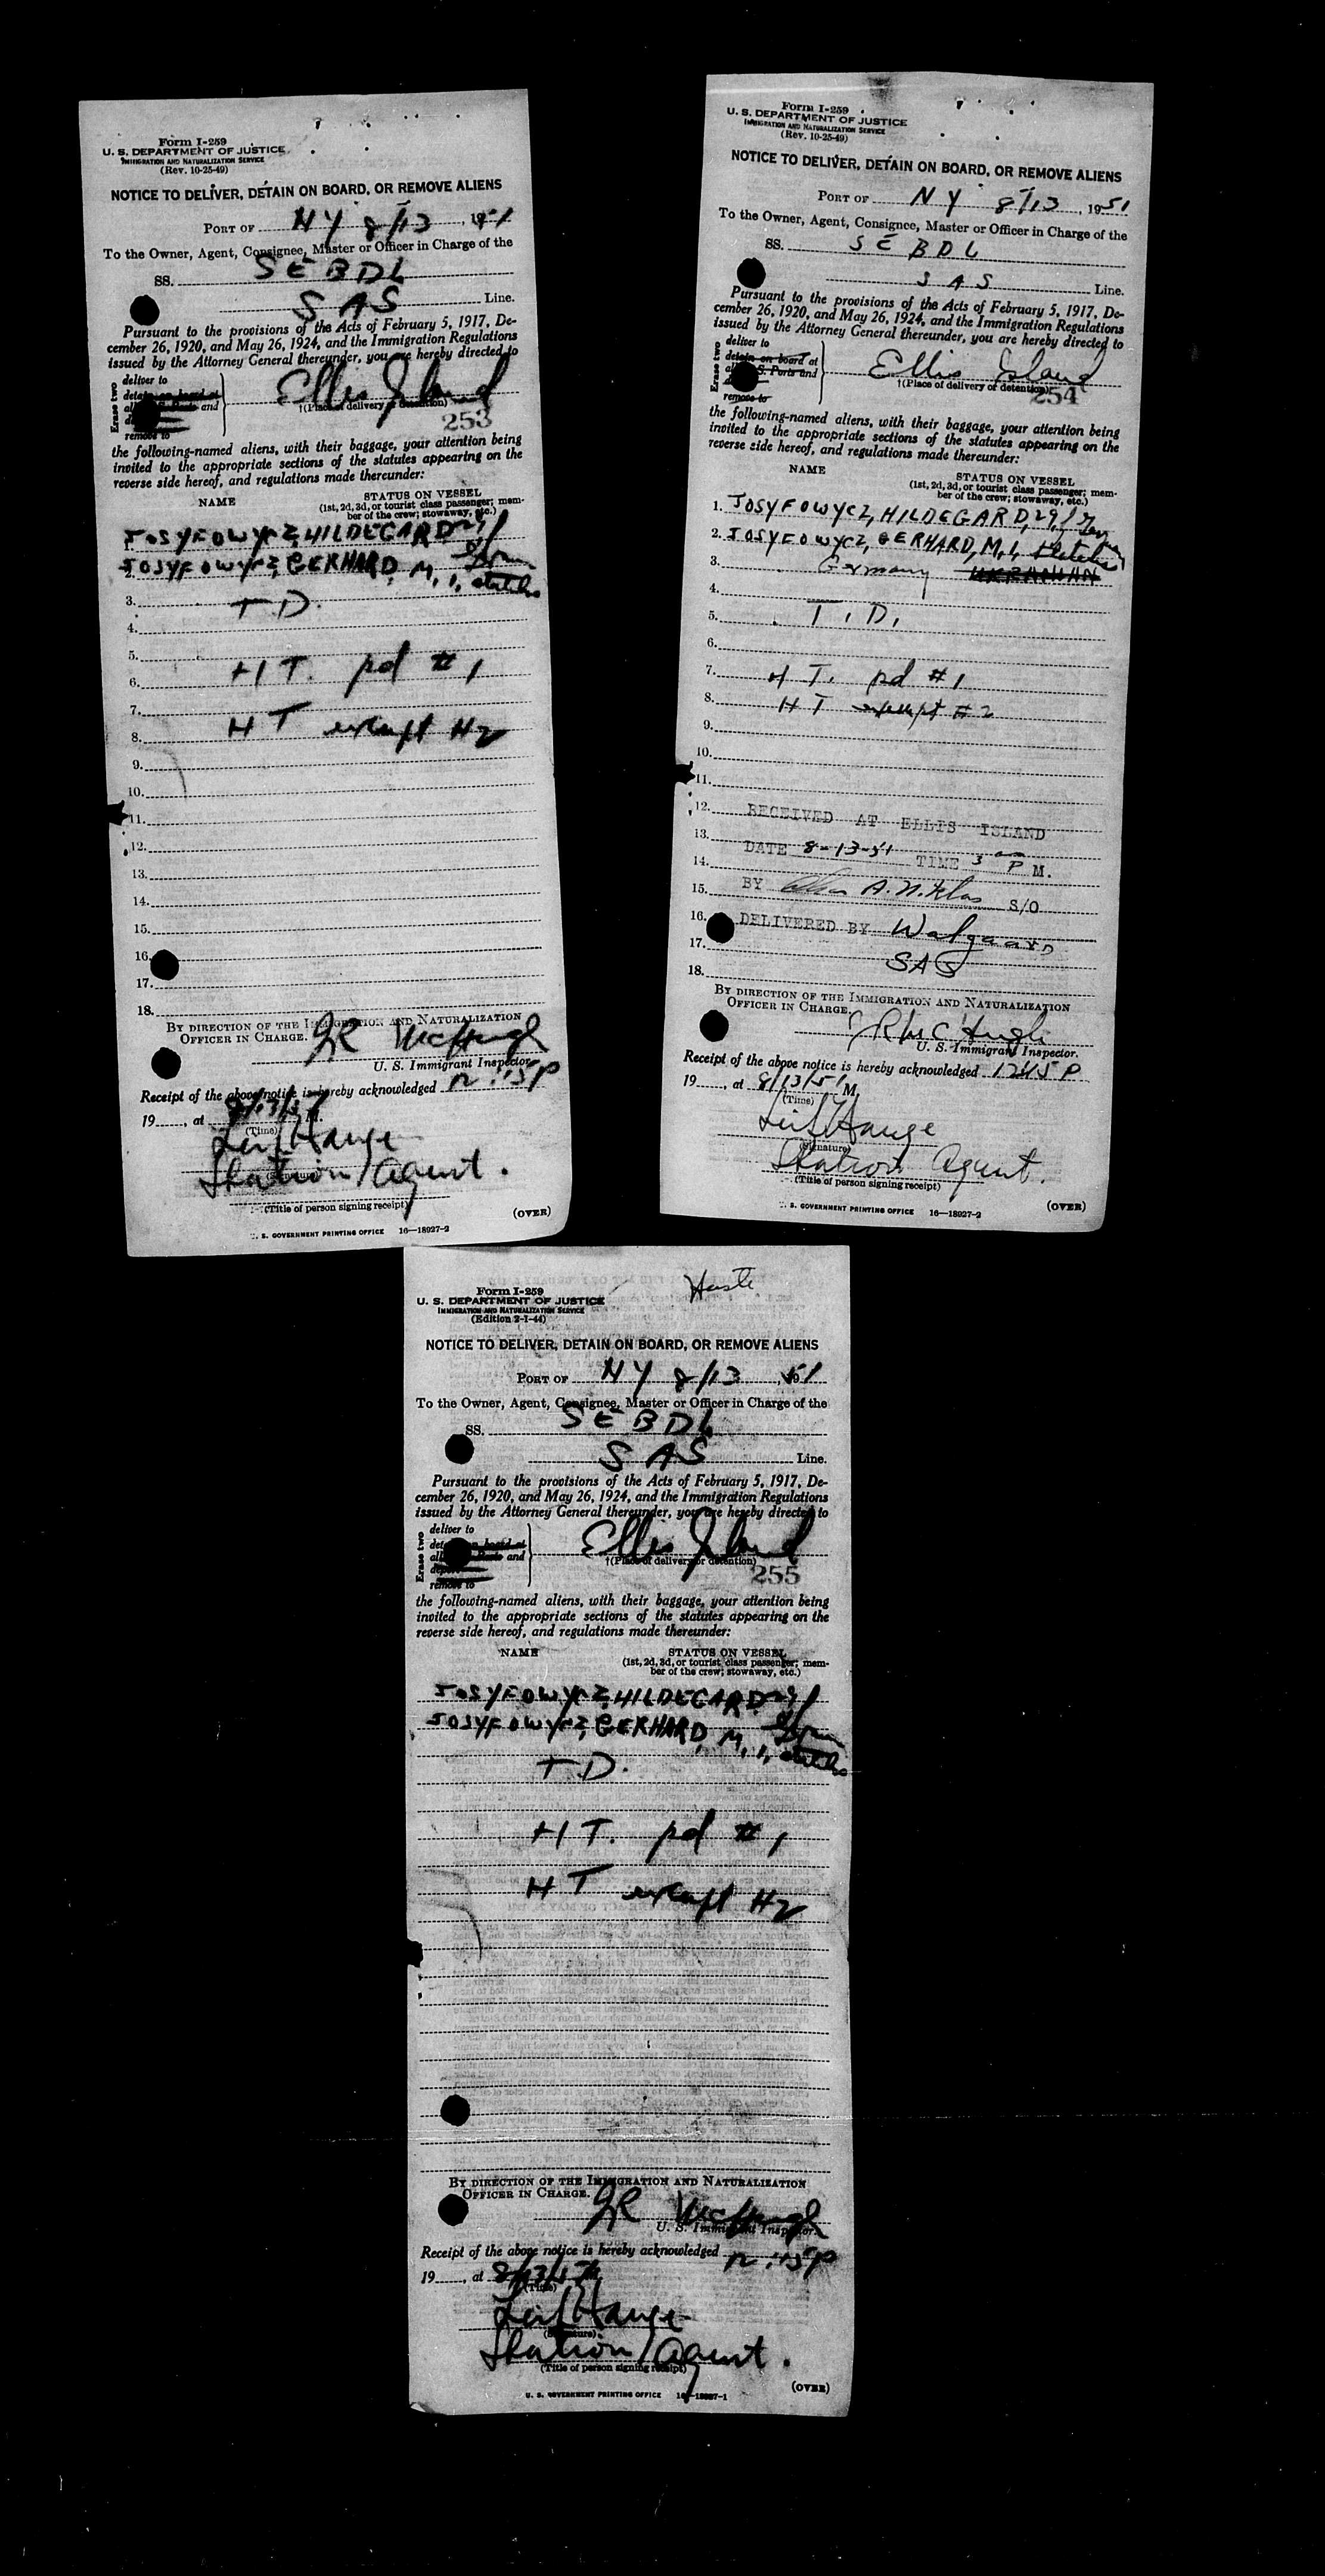 Form I-259
U. S. DEPARTMENT OF JUSTICE
IMMIGRATION AND NATURALIZATION SERVICE
(Rev. 10-25-49)
NOTICE TO DELIVER, DETAIN ON BOARD, OR REMOVE ALIENS
PORT OF NY 8/13, 1951
To the Owner, Agent, Consignee, Master or Officer in Charge of the
SS. SEBDL
SAS Line.
Pursuant to the provisions of the Acts of February 5, 1917, De-
cember 26, 1920, and May 26, 1924, and the Immigration Regulations
issued by the Attorney General thereunder, you are hereby directed to
Erase two
deliver to
detain on board at
and
remove to
Ellis Island
†(Place of delivery or detention)
253
the following-named aliens, with their baggage, your attention being
invited to the appropriate sections of the statutes appearing on the
reverse side hereof, and regulations made thereunder:
NAME STATUS ON VESSEL
(1st, 2d, 3d, or tourist class passenger; mem-
ber of the crew; stowaway, etc.)
1. JOSYFOWYCZ, HILDEGARD, 29, f
2. JOSYFOWYCZ, GERHARD, M, 1,
3. T D.
4.
5.
6. HT. pd #1
7.
8. HT exempt #2
9.
10.
11.
12.
13.
14.
15.
16.
17.
18.
BY DIRECTION OF THE IMMIGRATION AND NATURALIZATION
OFFICER IN CHARGE. JR McHugh
U. S. Immigrant Inspector.
Receipt of the above notice is hereby acknowledged 12:45P
19, at 8/13/51 M.
(Time)
Leif Hauge
(Signature)
Station Agent.
(Title of person signing receipt)
(OVER)
U. S. GOVERNMENT PRINTING OFFICE 16—18927-2
Form I-259
U. S. DEPARTMENT OF JUSTICE
IMMIGRATION AND NATURALIZATION SERVICE
(Rev. 10-25-49)
NOTICE TO DELIVER, DETAIN ON BOARD, OR REMOVE ALIENS
PORT OF NY 8/13, 1951
To the Owner, Agent, Consignee, Master or Officer in Charge of the
SS. SEBDL
SAS Line.
Pursuant to the provisions of the Acts of February 5, 1917, De-
cember 26, 1920, and May 26, 1924, and the Immigration Regulations
issued by the Attorney General thereunder, you are hereby directed to
Erase two
deliver to
detain on board at
S. Ports and
remove to
Ellis Island
†(Place of delivery or detention)
254
the following-named aliens, with their baggage, your attention being
invited to the appropriate sections of the statutes appearing on the
reverse side hereof, and regulations made thereunder:
NAME STATUS ON VESSEL
(1st, 2d, 3d, or tourist class passenger; mem-
ber of the crew; stowaway, etc.)
1. JOSYFOWYCZ, HILDEGARD, 29, f
2. JOSYFOWYCZ, GERHARD, M, 1,
3. Germany
4.
5. T. D.
6.
7. HT. pd #1
8. HT exempt #2
9.
10.
11.
12. RECEIVED AT ELLIS ISLAND
13. DATE 8-13-51 TIME 3 00 P M.
14.
15. BY A. S/O
16. DELIVERED BY Walgaard
17. SAS
18.
BY DIRECTION OF THE IMMIGRATION AND NATURALIZATION
OFFICER IN CHARGE. JR McHugh
U. S. Immigrant Inspector.
Receipt of the above notice is hereby acknowledged 1245 P
19, at 8/13/51 M.
(Time)
Leif Hauge
(Signature)
Station Agent.
(Title of person signing receipt)
(OVER)
U. S. GOVERNMENT PRINTING OFFICE 16—18927-2
Form I-259
U. S. DEPARTMENT OF JUSTICE
IMMIGRATION AND NATURALIZATION SERVICE
(Edition 2-1-44)
NOTICE TO DELIVER, DETAIN ON BOARD, OR REMOVE ALIENS
PORT OF NY 8/13, 1951
To the Owner, Agent, Consignee, Master or Officer in Charge of the
SS. SEBDL
SAS Line.
Pursuant to the provisions of the Acts of February 5, 1917, De-
cember 26, 1920, and May 26, 1924, and the Immigration Regulations
issued by the Attorney General thereunder, you are hereby directed to
Erase two
deliver to
detain on board at
and
remove to
Ellis Island
†(Place of delivery or detention)
255
the following-named aliens, with their baggage, your attention being
invited to the appropriate sections of the statutes appearing on the
reverse side hereof, and regulations made thereunder:
NAME STATUS ON VESSEL
(1st, 2d, 3d, or tourist class passenger; mem-
ber of the crew; stowaway, etc.)
JOSYFOWYCZ, HILDEGARD, 29, f
JOSYFOWYCZ, GERHARD, M, 1,
T D.
HT. pd #1
HT exempt #2
BY DIRECTION OF THE IMMIGRATION AND NATURALIZATION
OFFICER IN CHARGE. JR McHugh
U. S. Immigrant Inspector.
Receipt of the above notice is hereby acknowledged 12:45P
19, at 8/13/51 M.
(Time)
Leif Hauge
(Signature)
Station Agent.
(Title of person signing receipt)
(OVER)
U. S. GOVERNMENT PRINTING OFFICE 16—18927-1